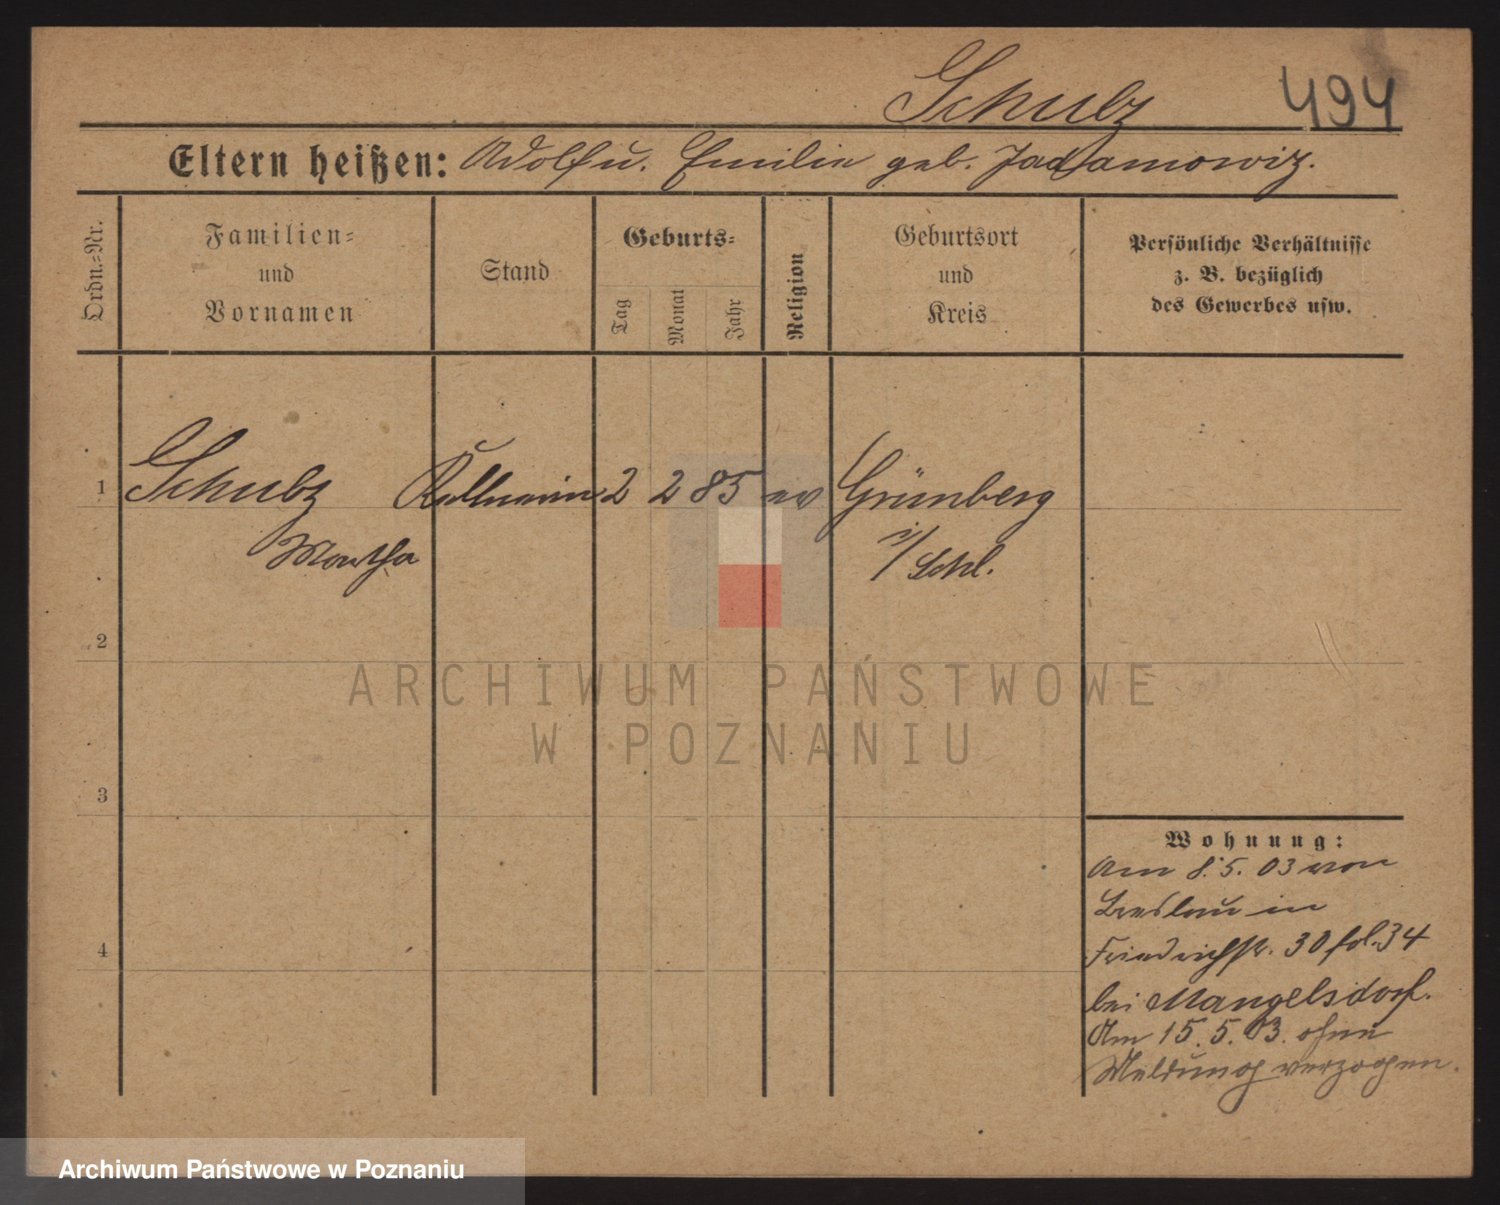 Schulz 494
Eltern heißen: Adolf u. Emilie geb.
Ordn.-Nr.
Familien-
und
Vornamen
Stand
Geburts-
Tag
Monat
Jahr
Religion
Geburtsort
und
Kreis
Persönliche Verhältnisse
z. B. bezüglich
des Gewerbes usw.
1 Schulz Kellnerin 2 2 85 ev Grünberg
Martha i/Schl.
2
3
4
Wohnung:
Am 8.5.03 von
Breslau in
Friedrichstr. 30 fol. 34
bei Mangelsdorf.
Am 15.5.03. ohne
Meldung verzogen.
ARCHIWUM PAŃSTWOWE
W POZNANIU
Archiwum Państwowe w Poznaniu